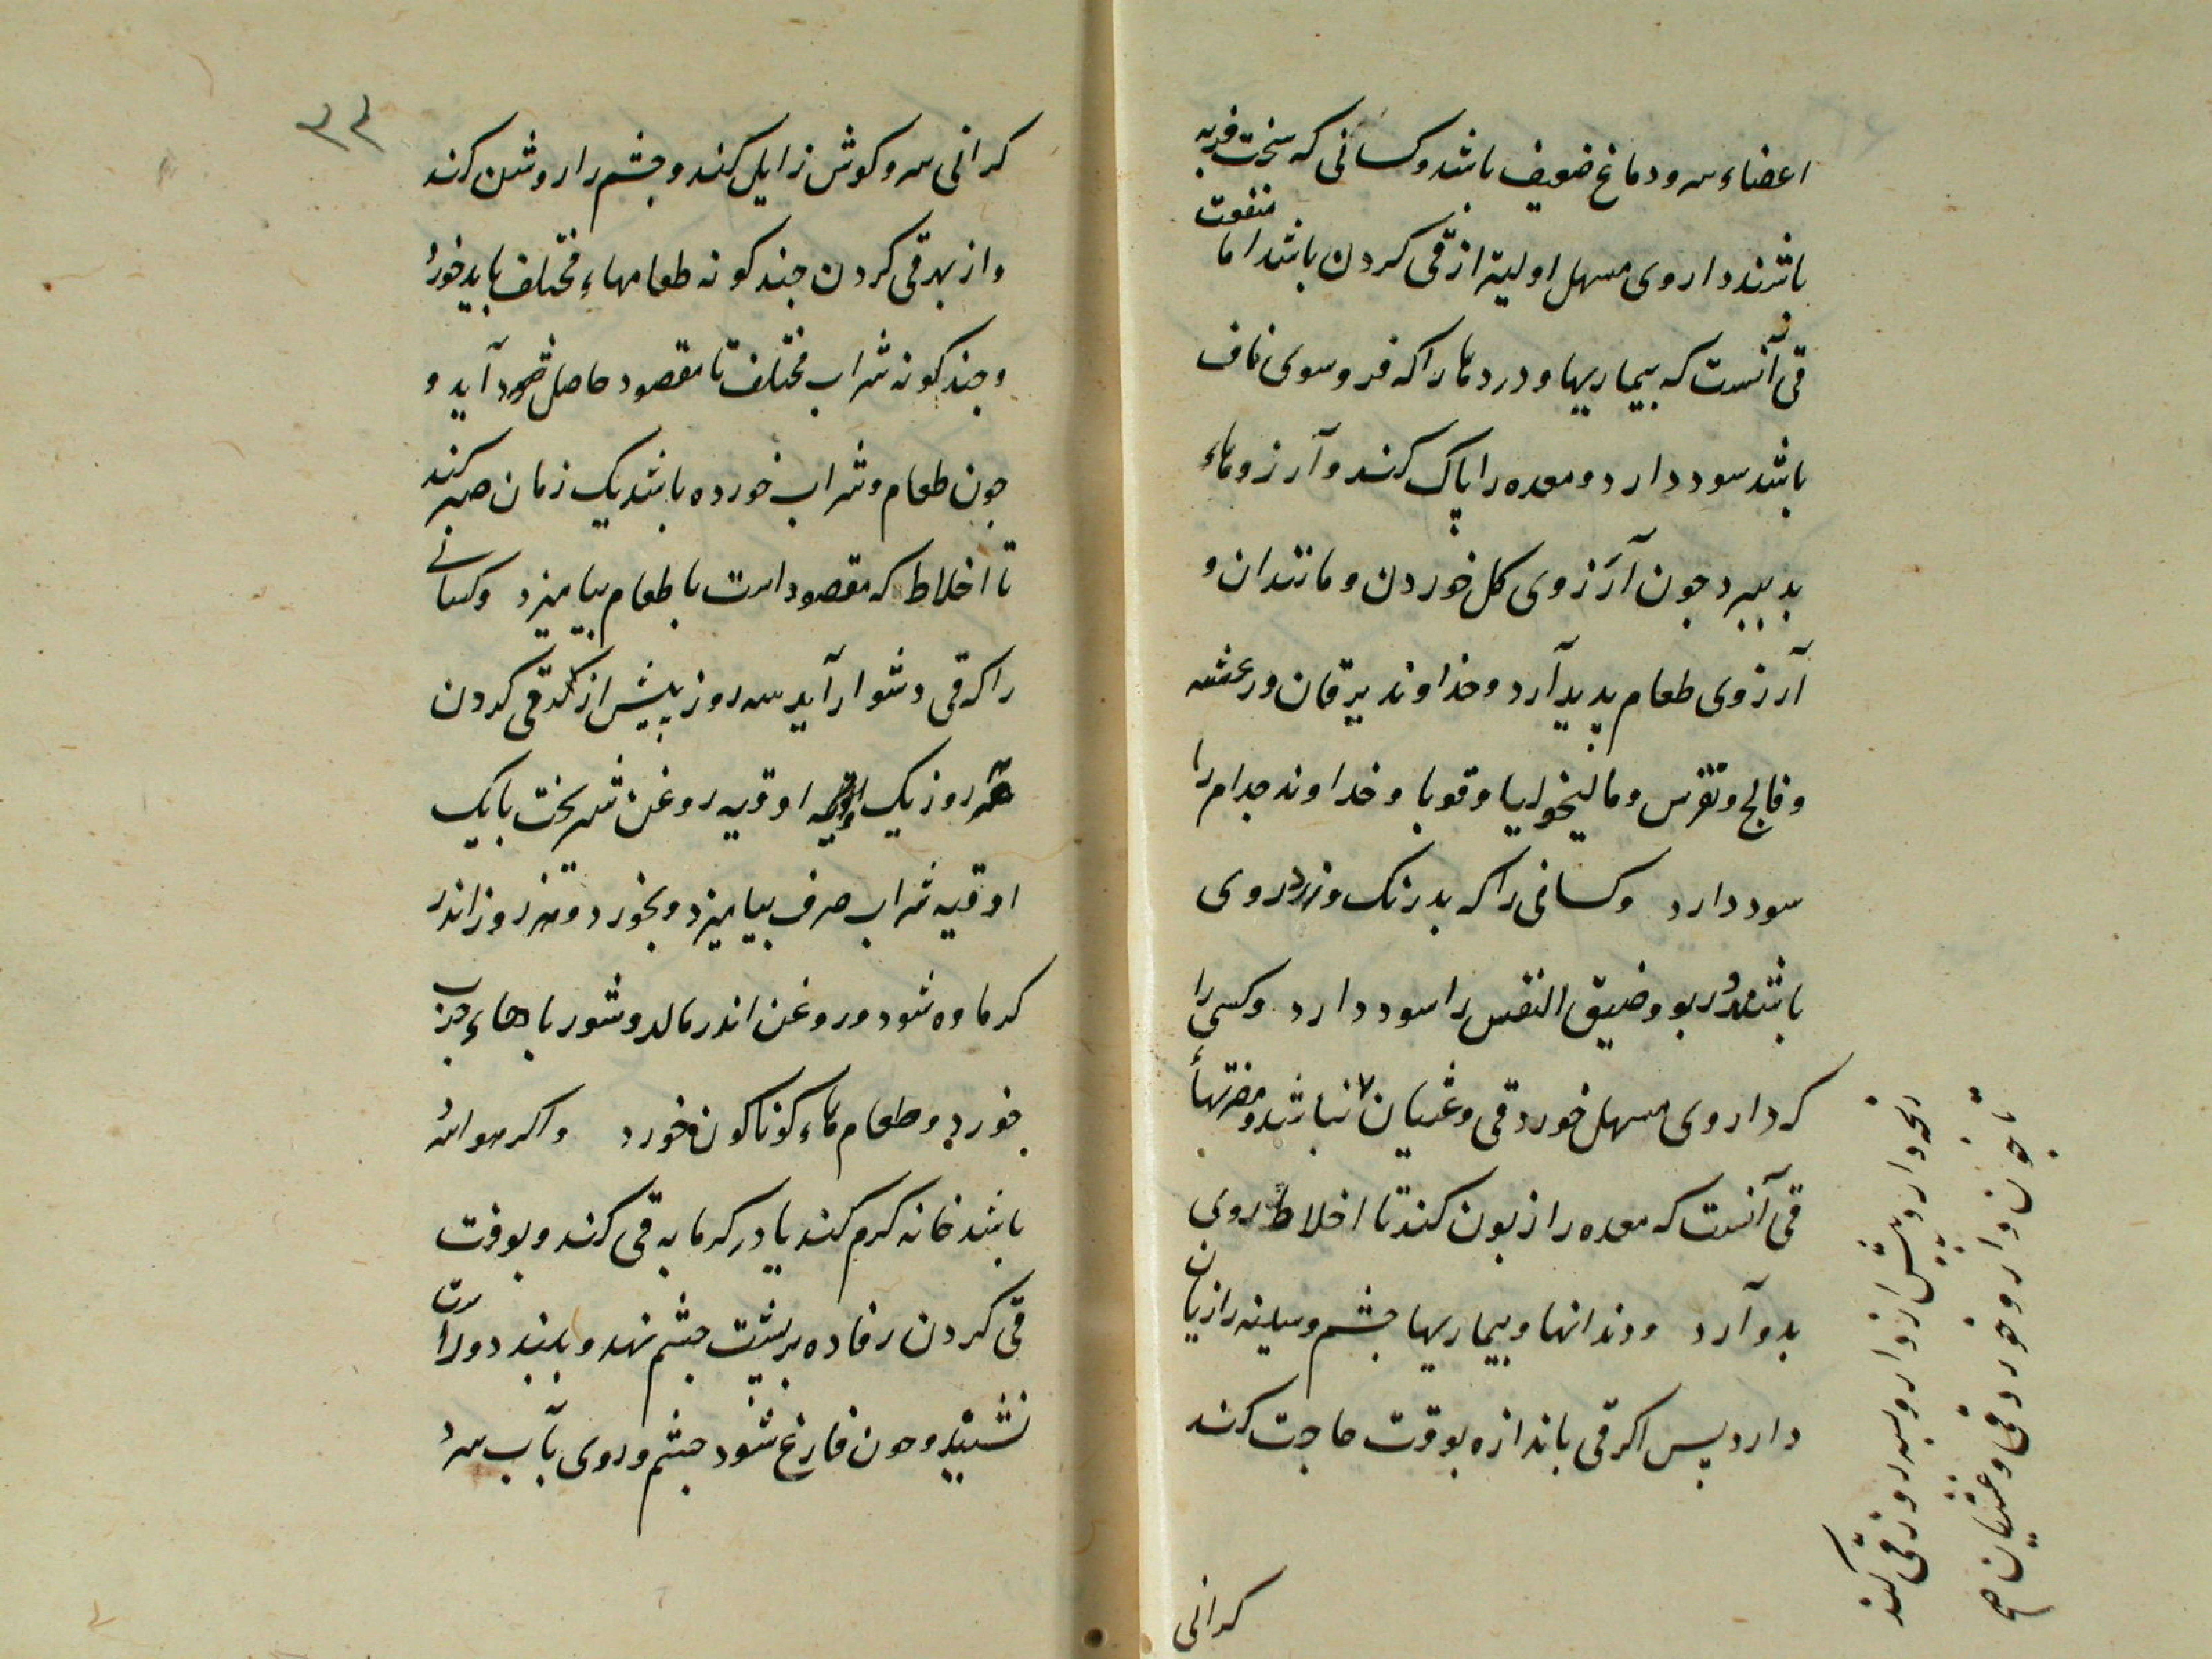 اعضاء سر و دماغ ضعیف باشد و کسانی که سخت فربه
باشند داروی مسهل اولیتر از قی کردن باشد اما منفعت
قی آنست که بیماریها و دردها را که فروسوی ناف
باشد سود دارد و معده را پاک کند و آرزوهاء
بد ببرد جون آرزوی کل خوردن و مانند ان و
آرزوی طعام پدید آرد و خداوند یرقان و رعشه
و فالج و نقرس و مالیخولیا و قوبا و خداوند جدام را
سود دارد وکسانی را که بد رنک و زرد روی
باشند و ربو و ضیق النفس را سود دارد وکسی را
که داروی مسهل خورد قی و غثیان نباشد و مضرتها
قی آنست که معده را زبون کند تا اخلاط روی
بدو آرد و دندانها و بیماریها جشم و سینه را زیان
دارد پس اکر قی باندازه بوقت حاجت کند
کرانی
رنجه دارد و پیش از دارو سه روز قی کند
تا جون دارو خورد قی و غثیان
۳۲
کرانی سر و کوش زایل کند و جشم را روشن کند
و از بهر قی کردن جند کونه طعامهاء مختلف باید خورد
و جند کونه شراب مختلف تا مقصود حاصل آید و
جون طعام و شراب خورده باشد یک زمان صبر کند
تا اخلاط که مقصود است با طعام بیامیزد وکسانی
را که قی دشوار آید سه روز پیش از قی کردن
هر روز یک اوقیه روغن شیر بخت با یک
اوقیه شراب صرف بیامیزد و بخورد و هر روز اندر
کرماوه شود و روغن اندر مالد و شورباهاء جرب
خورد و طعام هاء کوناکون خورد و اکر هوا سرد
باشد خانه کرم کند یا در کرمابه قی کند و بوقت
قی کردن رفاده بر پشت جشم نهد و ببندد و راست
نشیند و جون فارغ شود جشم و روی بآب سرد